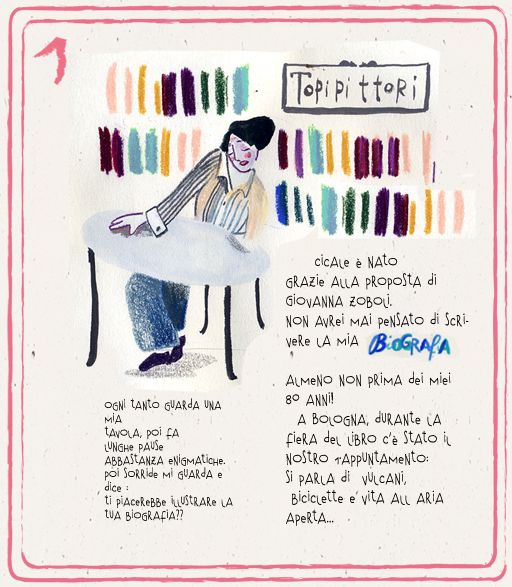 1
Topipittori
cicale è nato
grazie alla proposta di
Giovanna Zoboli.
Non avrei mai pensato di scri-
vere la mia BioGRafia
Almeno non prima dei miei
80 anni!
A Bologna, durante la
fiera del libro c'è stato il
nostro rappuntamento:
Si parla di vulcani,
Biciclette e' vita all aria
aperta...
Ogni tanto guarda una
mia
tavola, poi fa
lunghe pause
abbastanza enigmatiche.
poi sorride mi guarda e
dice :
ti piacerebbe illustrare la
tua biografia??